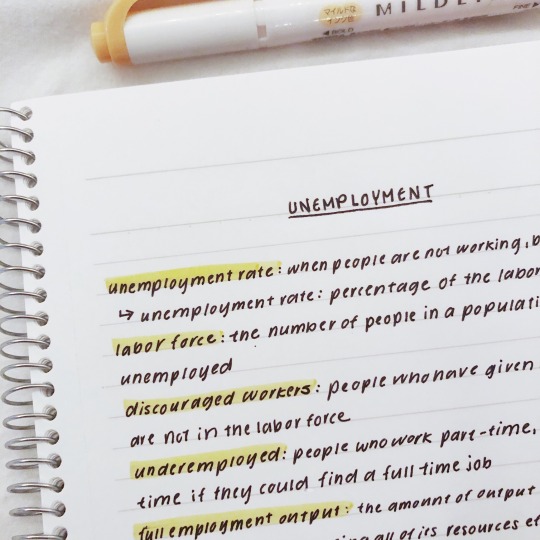 マイルドな
インク色
MILDL
◀ BOLD
FINE ▶
UNEMPLOYMENT
unemployment rate: when people are not working, b
↳ unemployment rate: percentage of the labor
labor force: the number of people in a populati
unemployed
discouraged workers: people who have given
are not in the labor force
underemployed: people who work part-time,
time if they could find a full time job
full employment output: the amount of output
ing all of its resources ef